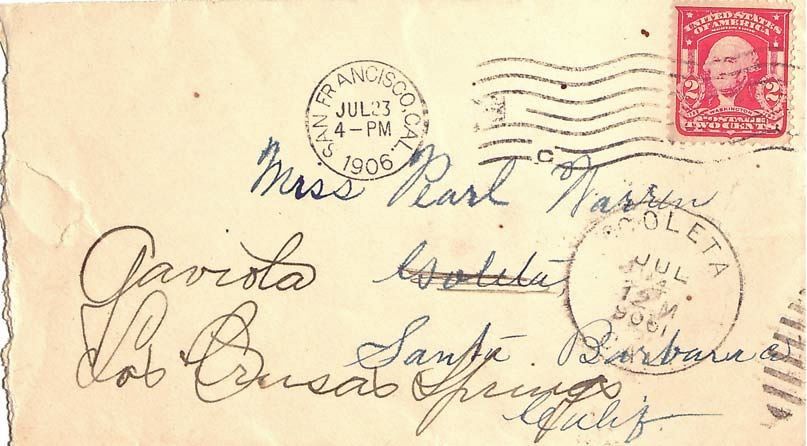 UNITED STATES
OF AMERICA
2 2
WASHINGTON
POSTAGE
TWO CENTS
SAN FRANCISCO, CAL.
JUL 23
4-PM
1906
C
Miss Pearl Warren
Goleta,
Santa Barbara
Calif
Gaviota
Los Crusas Springs
GOLETA
JUL
24
12 M
1906